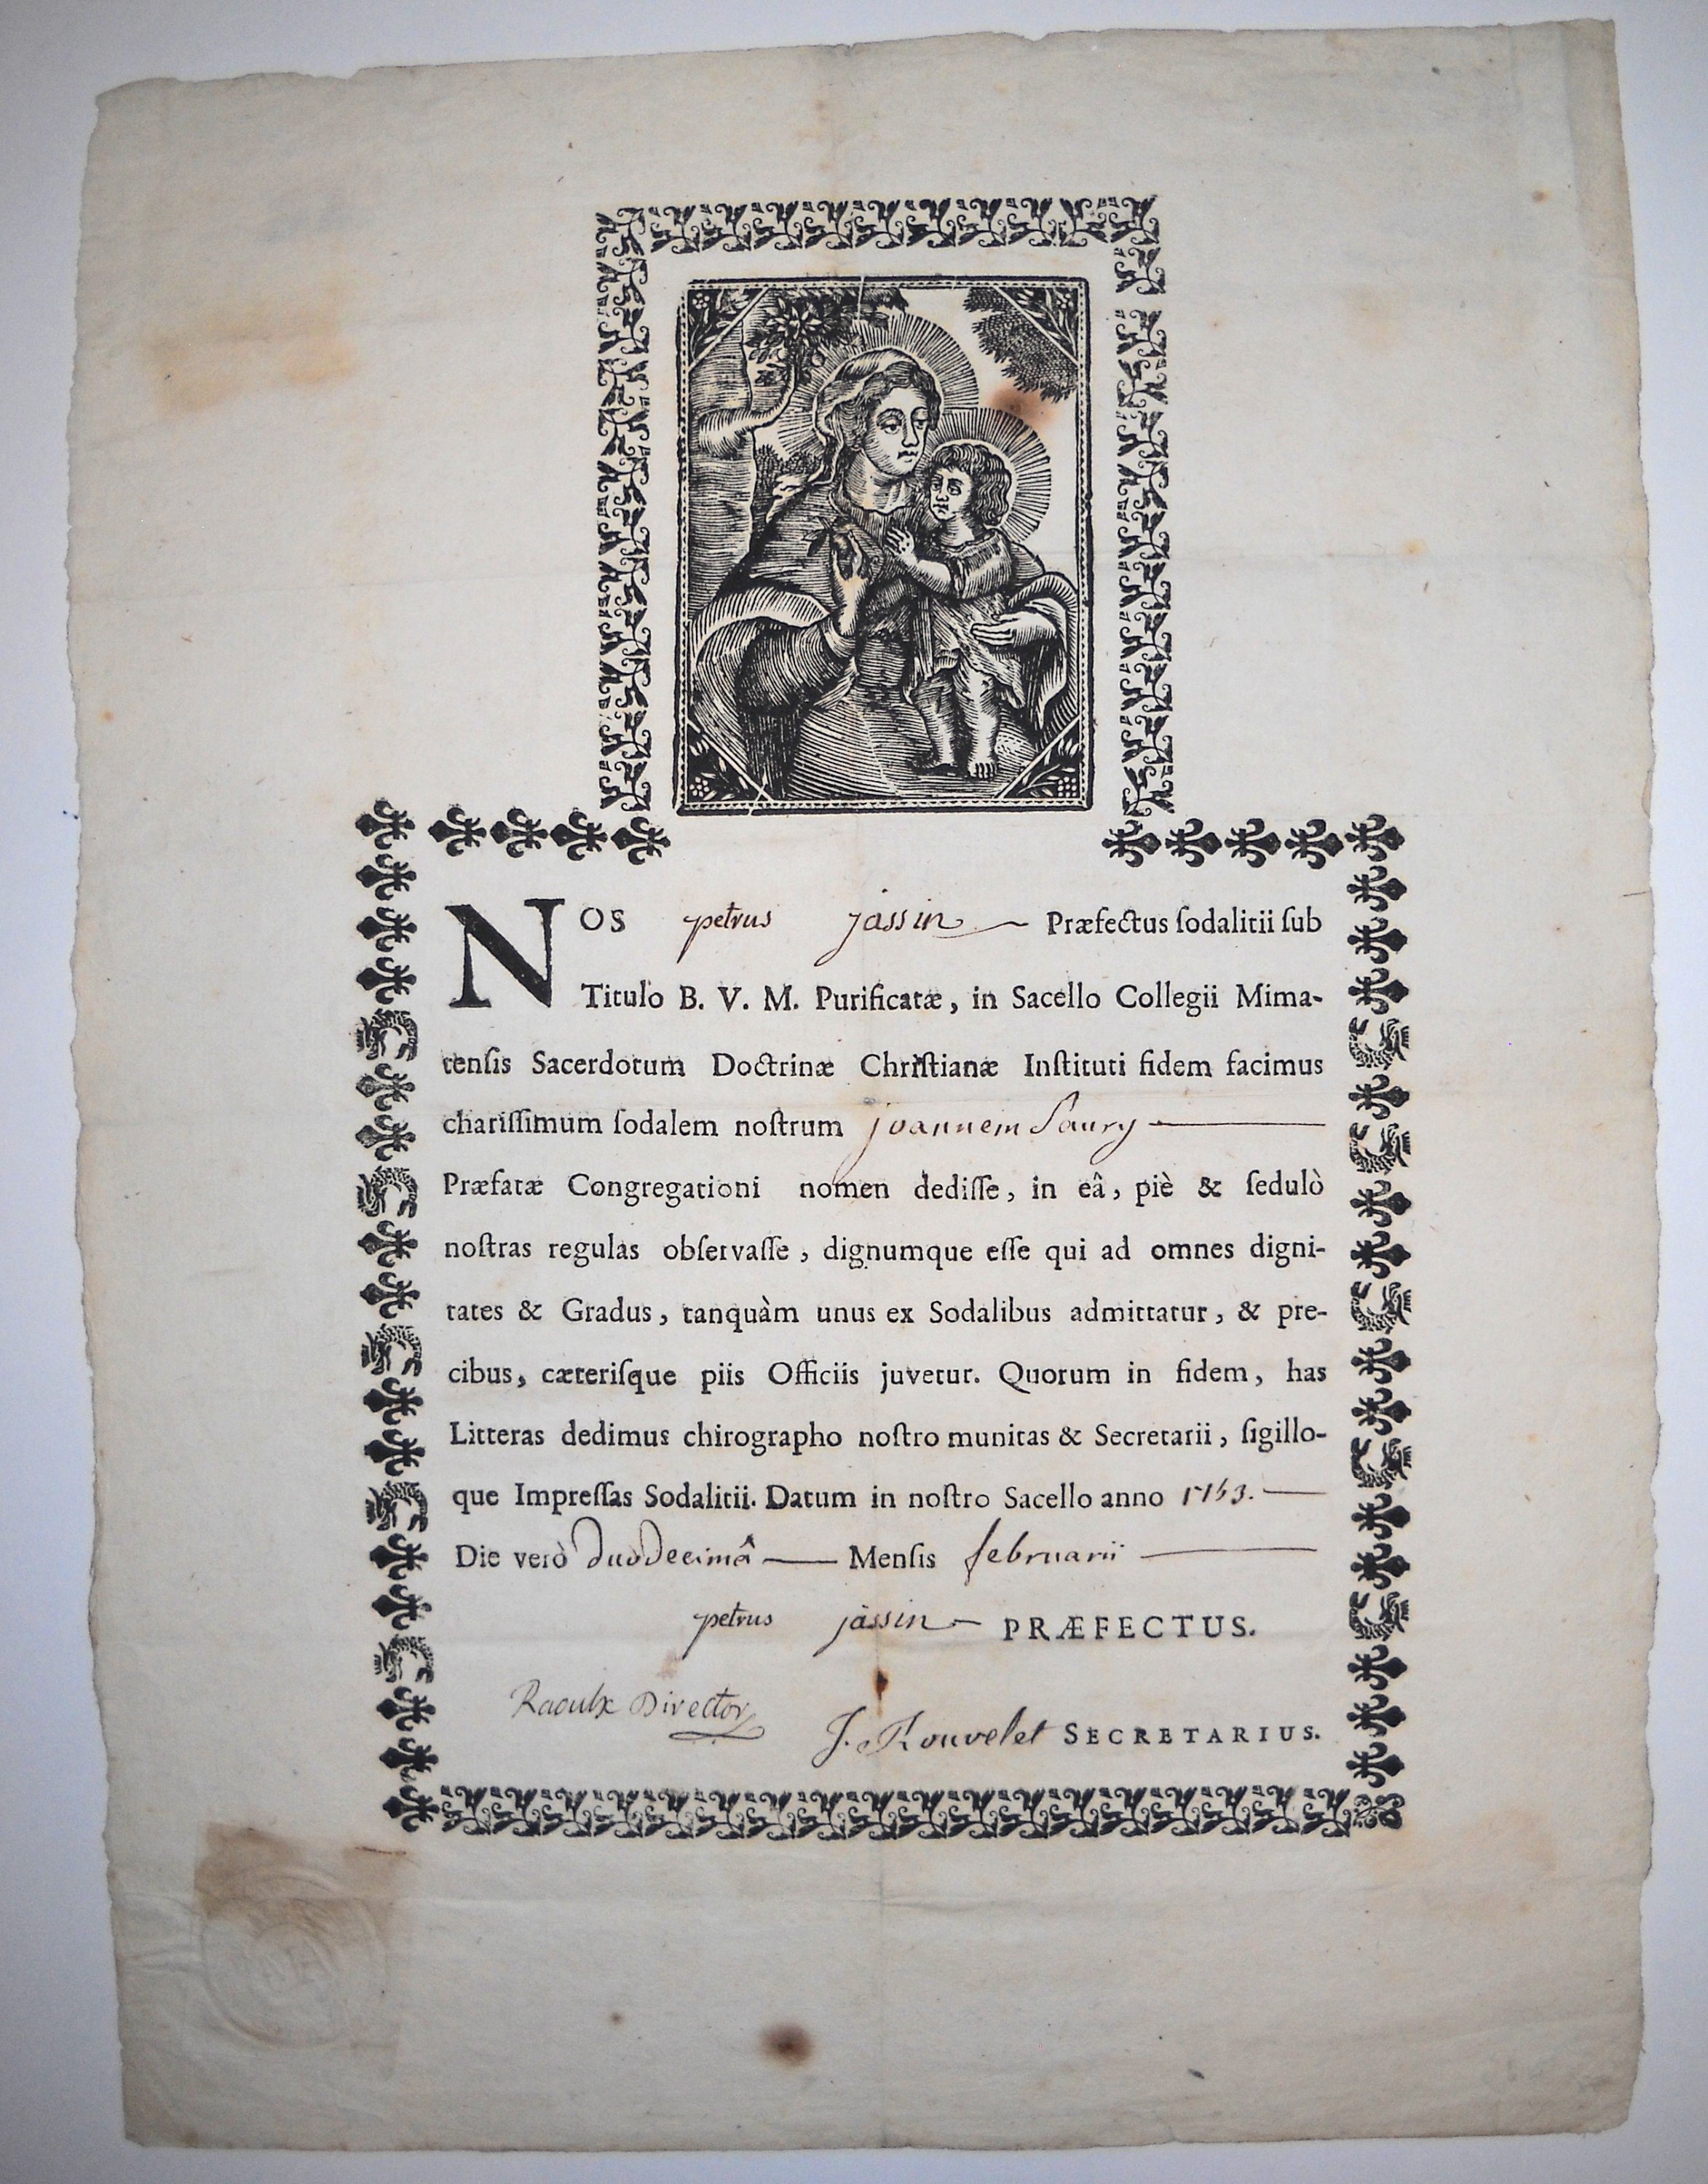 NOS petrus jassin Præfectus ſodalitii ſub
Titulo B. V. M. Purificatæ, in Sacello Collegii Mima-
tenſis Sacerdotum Doctrinæ Chriſtianæ Inſtituti fidem facimus
chariſſimum ſodalem noſtrum joannem Saury
Præfatæ Congregationi nomen dediſſe, in eâ, piè & ſedulò
noſtras regulas obſervaſſe, dignumque eſſe qui ad omnes digni-
tates & Gradus, tanquàm unus ex Sodalibus admittatur, & pre-
cibus, cæteriſque piis Officiis juvetur. Quorum in fidem, has
Litteras dedimus chirographo noſtro munitas & Secretarii, ſigillo-
que Impreſſas Sodalitii. Datum in noſtro Sacello anno
Die verò duodecimâ Menſis februarii
petrus jassin PRÆFECTUS.
Raoulx Director
J. Rouvelet SECRETARIUS.